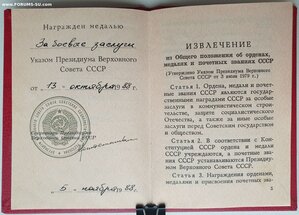 FORUMS-SU.com
Награжден медалью
За боевые заслуги
Указом Президиума Верховного
Совета СССР
от „13“ октября 1988 г.
„5“ ноября 1988.
ИЗВЛЕЧЕНИЕ
из Общего положения об орденах,
медалях и почетных званиях СССР
(Утверждено Указом Президиума Верховного
Совета СССР от 3 июля 1979 г.)
Статья 1. Ордена, медали и почетные
звания СССР являются
государственными наградами СССР за особые
заслуги в коммунистическом строительстве,
защите социалистического
Отечества, а также за иные
особые заслуги перед Советским государством
и обществом.
Статья 2. В соответствии с Конституцией
СССР ордена и медали
СССР учреждаются, а почетные звания
СССР устанавливаются Президиумом
Верховного Совета СССР.
Статья 3. Награждения орденами,
медалями и присвоения почетных
3